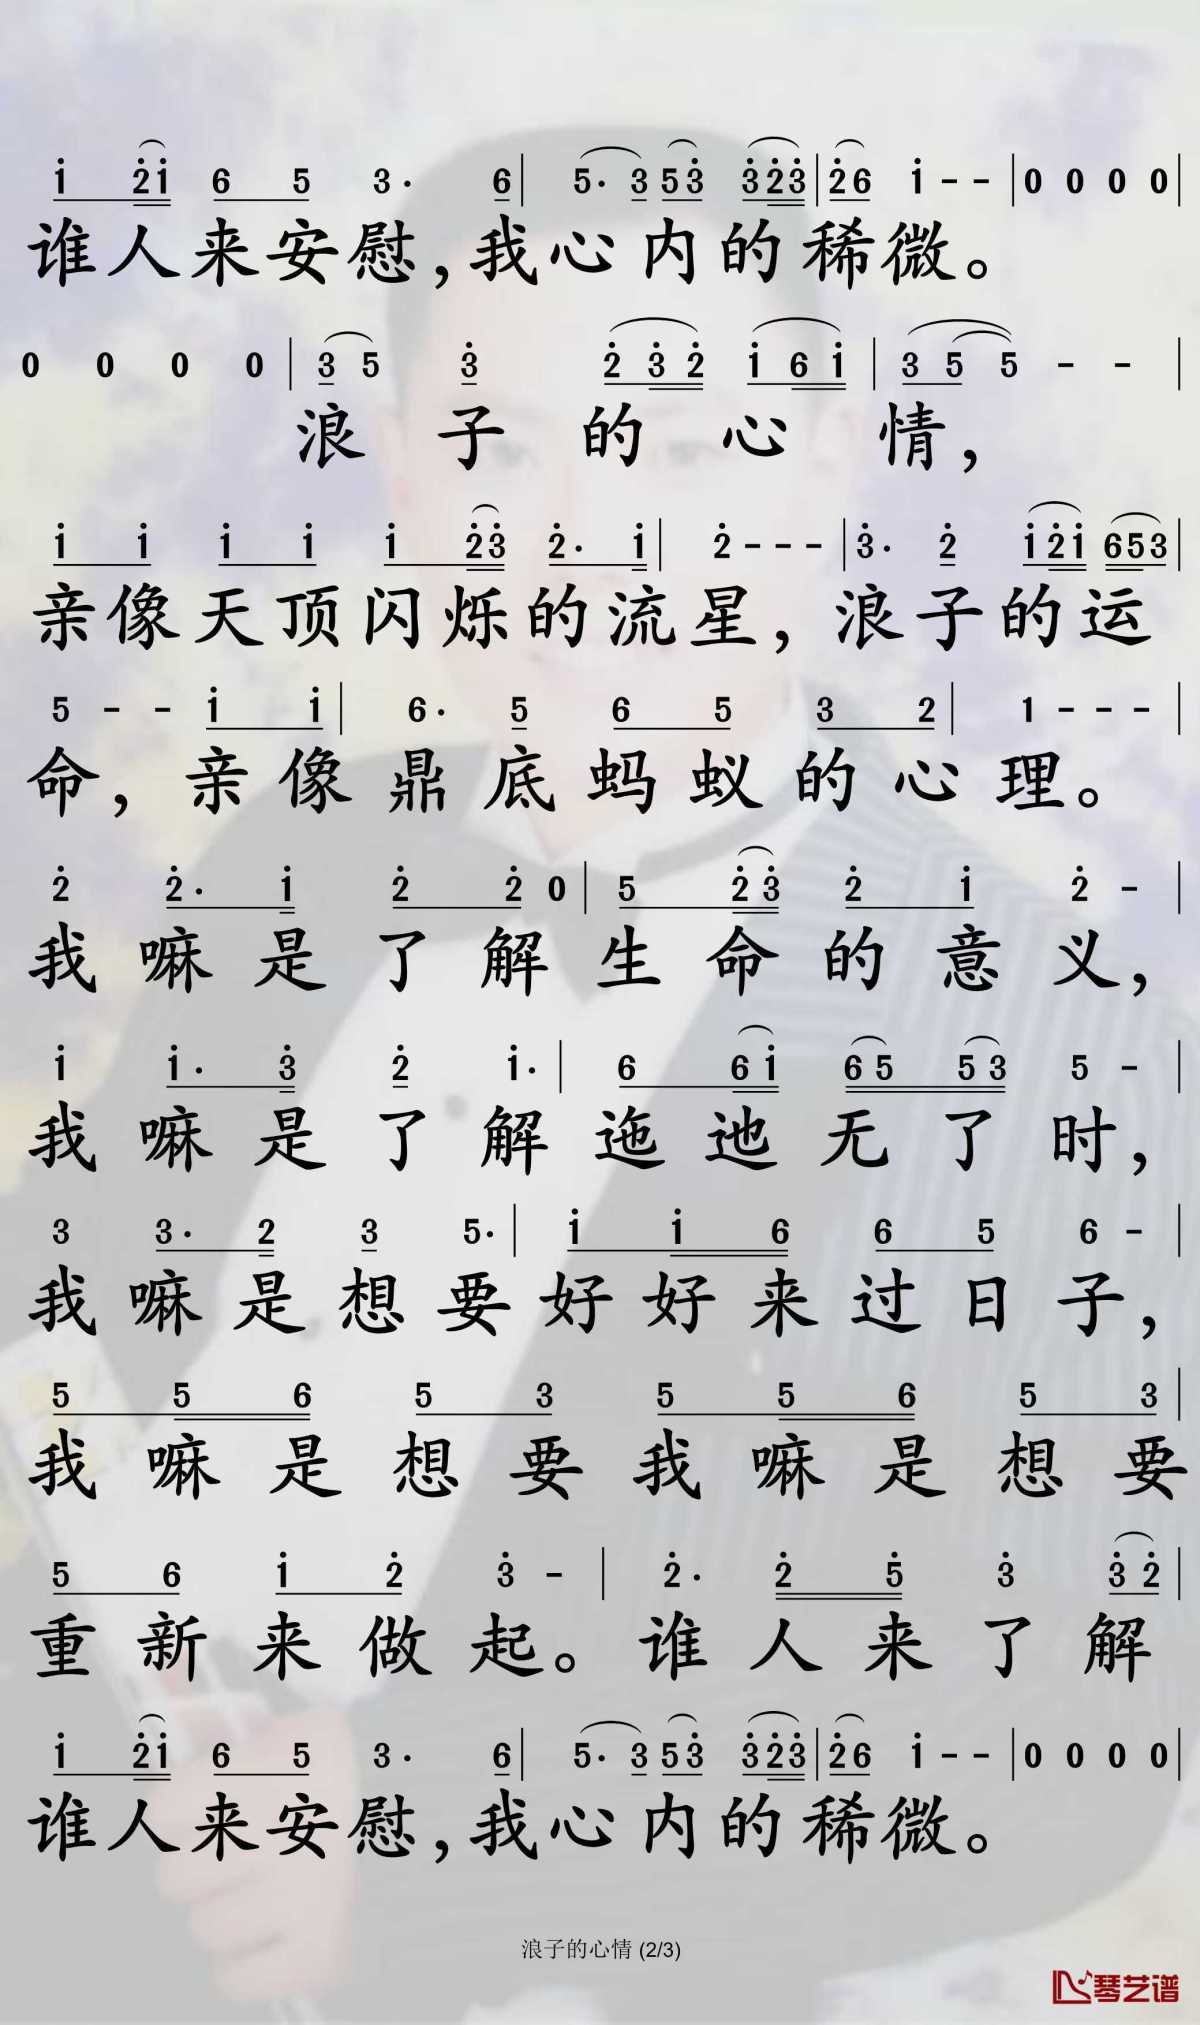 1̇ 2̇1̇ 6 5 3· 6 | 5· 3 5 3̇ 3̇2̇3̇ | 2̇6 1̇ - - | 0 0 0 0 |
谁人来安慰,我心内的稀微。
0 0 0 0 | 3 5 3̇ 2̇ 3̇ 2̇ 1̇ 6 1̇ | 3 5 5 - - |
浪子的心情,
1̇ 1̇ 1̇ 1̇ 1̇ 2̇3̇ 2̇· 1̇ | 2̇ - - - | 3̇· 2̇ 1̇2̇1̇ 653 |
亲像天顶闪烁的流星,浪子的运
5 - - 1̇ 1̇ | 6· 5 6 5 3 2 | 1 - - - |
命,亲像鼎底蚂蚁的心理。
2̇ 2̇· 1̇ 2̇ 2̇ 0 | 5 2̇ 3̇ 2̇ 1̇ 2̇ - |
我嘛是了解生命的意义,
1̇ 1̇· 3̇ 2̇ 1̇· | 6 6 1̇ 6 5 5 3 5 - |
我嘛是了解迤迌无了时,
3 3· 2 3 5· | 1̇ 1̇ 6 6 5 6 - |
我嘛是想要好好来过日子,
5 5 6 5 3 5 5 6 5 3 |
我嘛是想要我嘛是想要
5 6 1̇ 2̇ 3̇ - | 2̇· 2̇ 5̇ 3̇ 3̇ 2̇ |
重新来做起。谁人来了解
1̇ 2̇1̇ 6 5 3· 6 | 5· 3 5 3̇ 3̇2̇3̇ | 2̇6 1̇ - - | 0 0 0 0 |
谁人来安慰,我心内的稀微。
浪子的心情 (2/3)
琴艺谱